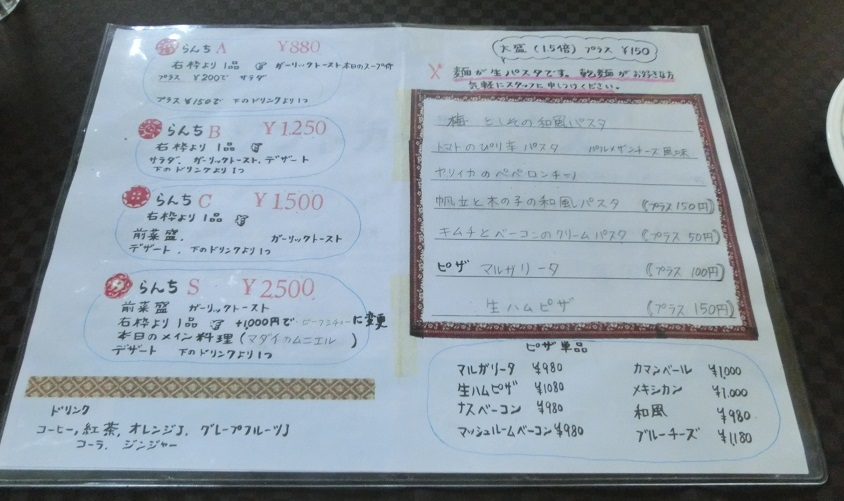 らんち A ¥880
右枠より1品 ガーリックトースト 本日のスープ付
プラス ¥200で サラダ
プラス ¥150で 下のドリンクより1つ
らんち B ¥1.250
右枠より1品
サラダ. ガーリックトースト. デザート
下のドリンクより1つ
らんち C ¥1.500
右枠より1品
前菜盛. ガーリックトースト
デザート. 下のドリンクより1つ
らんち S ¥2.500
前菜盛 ガーリックトースト
右枠より1品 +1,000円で ビーフシチューに変更
本日のメイン料理 (マダイのムニエル )
デザート 下のドリンクより1つ
ドリンク
コーヒー, 紅茶, オレンジJ. グレープフルーツJ
コーラ. ジンジャー
大盛 (1.5倍) プラス ¥150
麺が生パスタです。乾麺がお好きな方
気軽にスタッフに申しつけください。
梅 としその和風パスタ
トマトのぴり辛 パスタ パルメザンチーズ風味
ヤリイカのペペロンチーノ
帆立と木の子の和風パスタ (プラス 150円)
キムチとベーコンのクリームパスタ (プラス 50円)
ピザ マルガリータ (プラス 100円)
生ハムピザ (プラス 150円)
ピザ単品
マルガリータ ¥980
生ハムピザ ¥1080
ナスベーコン ¥980
マッシュルームベーコン ¥980
カマンベール ¥1,000
メキシカン ¥1.000
和風 ¥980
ブルーチーズ ¥1,180